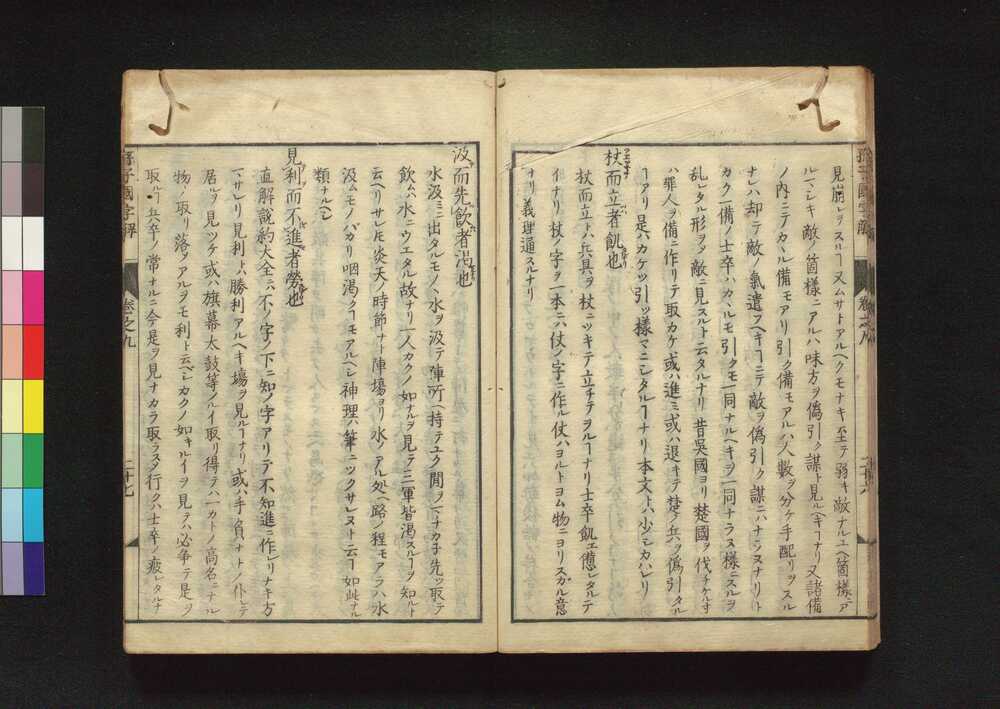 孫子國字解
卷之九
二十六
見崩レヲスルヿ又ムサトアルヘクモナキ至テ弱キ敵ナルユヘ箇樣ニア
ルマシキ敵ノ箇樣ニアルハ味方ヲ偽引ク謀ト見ルヘキヿナリ又諸備
ノ内ニテカヽル備モアリ引ク備モアルハ人數ヲ分ケ手配リヲスル
ナレハ却テ敵ノ氣遣フヘキヿニテ敵ヲ偽引ク謀ニハナラヌナリト
カク一備ノ士卒ハカヽルモ引クモ一同ナルヘキヲ一同ナラヌ樣ニスルヲ
乱レタル形ヲ敵ニ見スルト云タルナリ昔吳國ヨリ楚國ヲ伐チケル寸
ハ罪人ヲ備ニ作リテ取カケ或ハ進ミ或ハ退キテ楚ノ兵ヲ偽引タル
ヿアリ是ハカケツ引ツ樣マニシタルヿナリ本文トハ少シカハレリ
杖而立者飢也
杖而立トハ兵具ヲ杖ニツキテ立チテヲルヿナリ士卒飢ヱ憊レタルテ
イナリ杖ノ字ヲ一本ニハ仗ノ字ニ作ル仗ハヨルトヨム物ニヨリスガル意
ナリ義理通スルナリ
汲而先飲者渴也
水汲ミニ出タルモノヽ水ヲ汲テ陣所ヘ持テユク間ヲマタカ子先ッ取テ
飲ムハ水ニウエタル故ナリ一人カクノ如ナルヲ見テ三軍皆渴スルヿヲ知ルト
云ヘリサレ𪜈炎天ノ時節ナト陣塲ヨリ水ノアル処ヘ路ノ程モアラハ水
汲ムモノバカリ咽渴クヿモアルヘシ神理ハ筆ニツクサレヌト云ヿ如此ナル
類ナルヘシ
見利而不進者勞也
直解說約大全ニハ不ノ字ノ下ニ知ノ字アリテ不知進ニ作レリナキ方
マサレリ見利トハ勝利アルヘキ塲ヲ見ルヿナリ或ハ手負ナトノ仆レテ
居ルヲ見ツケ或ハ旗幕太鼓等ノルイ取リ得テハ一カトノ高名ニナル
物ノ取リ落シアルヲモ利ト云ベシカクノ如キルイヲ見テハ必爭テ是ヲ
取ルヿ兵卒ノ常ナルニ今是ヲ見ナカラ取ラスシテ行クハ士卒ノ疲レタルナ
孫子國字解
卷之九
二十七